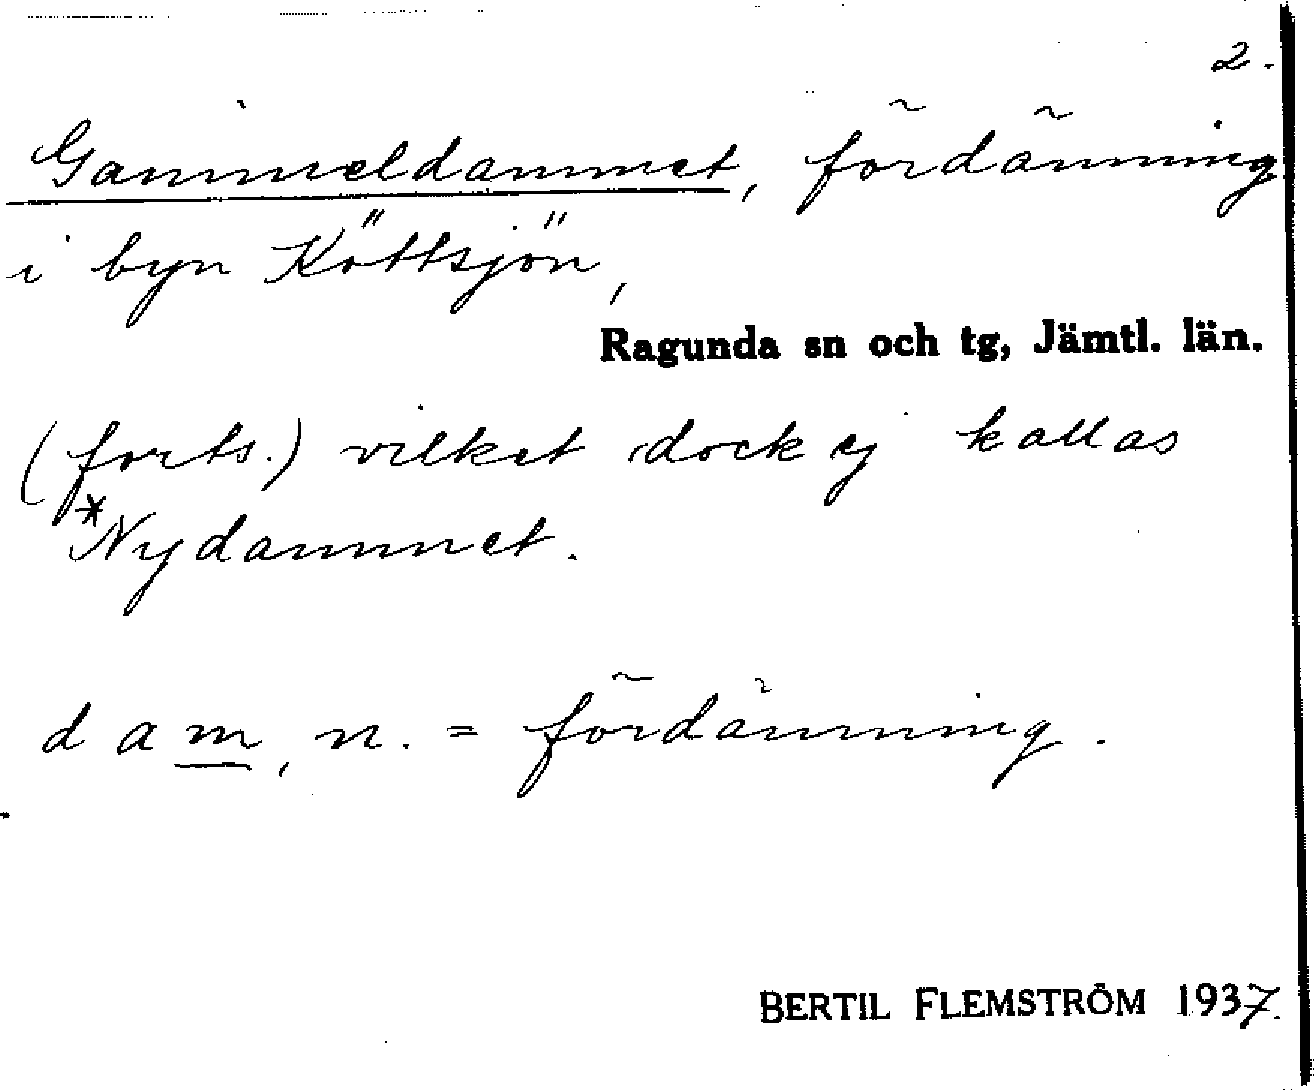 2.
Gammeldammet, fördämning
i byn Köttsjön,
Ragunda sn och tg, Jämtl. län.
(forts.) vilket dock ej kallas
*Nydammet.
dam, n. = fördämning.
BERTIL FLEMSTRÖM 1937.